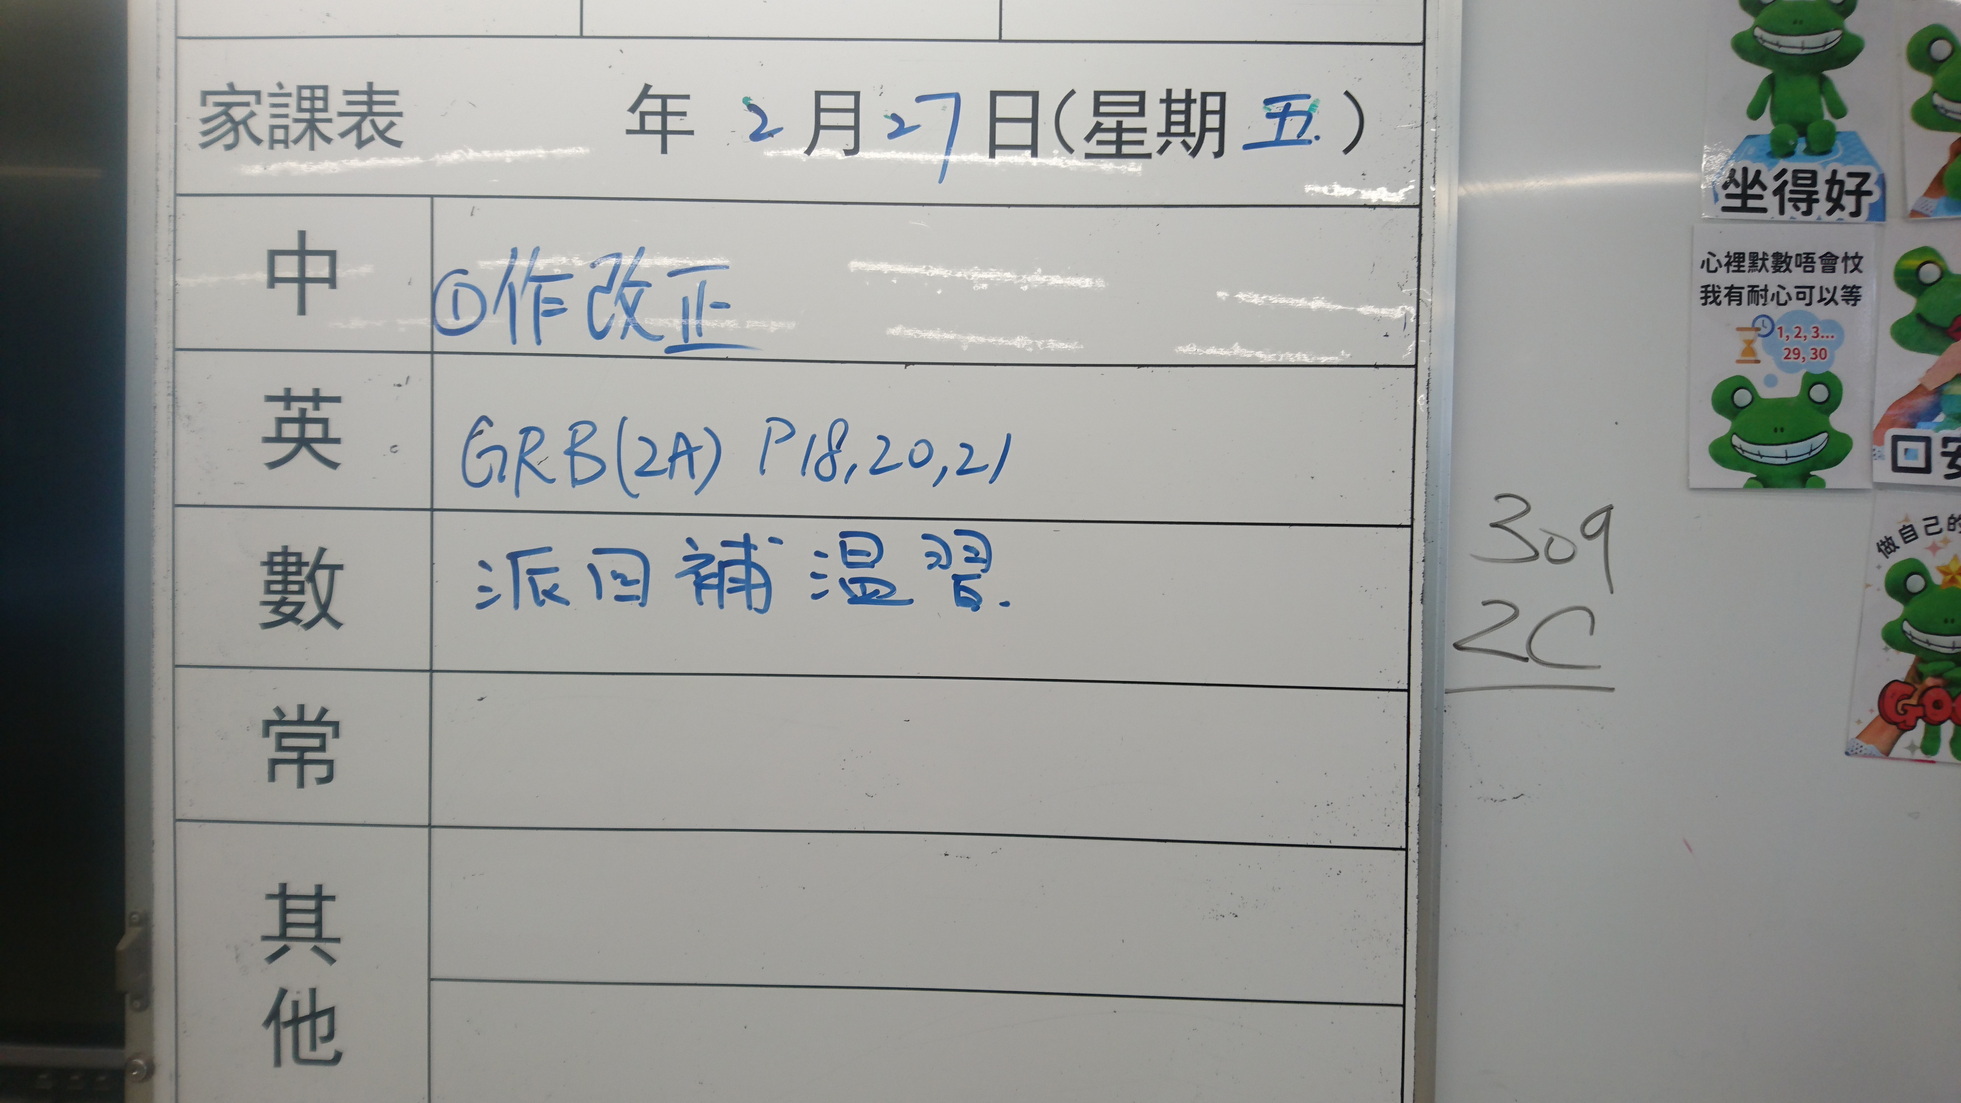 家課表 年 2 月 27 日(星期 五.)
中 ①作改正
英 GRB(2A) P18,20,21
數 派回補温習.
常
其他
309
2C
坐得好
心裡默數唔會忟
我有耐心可以等
1, 2, 3...
29, 30
口
做自己的